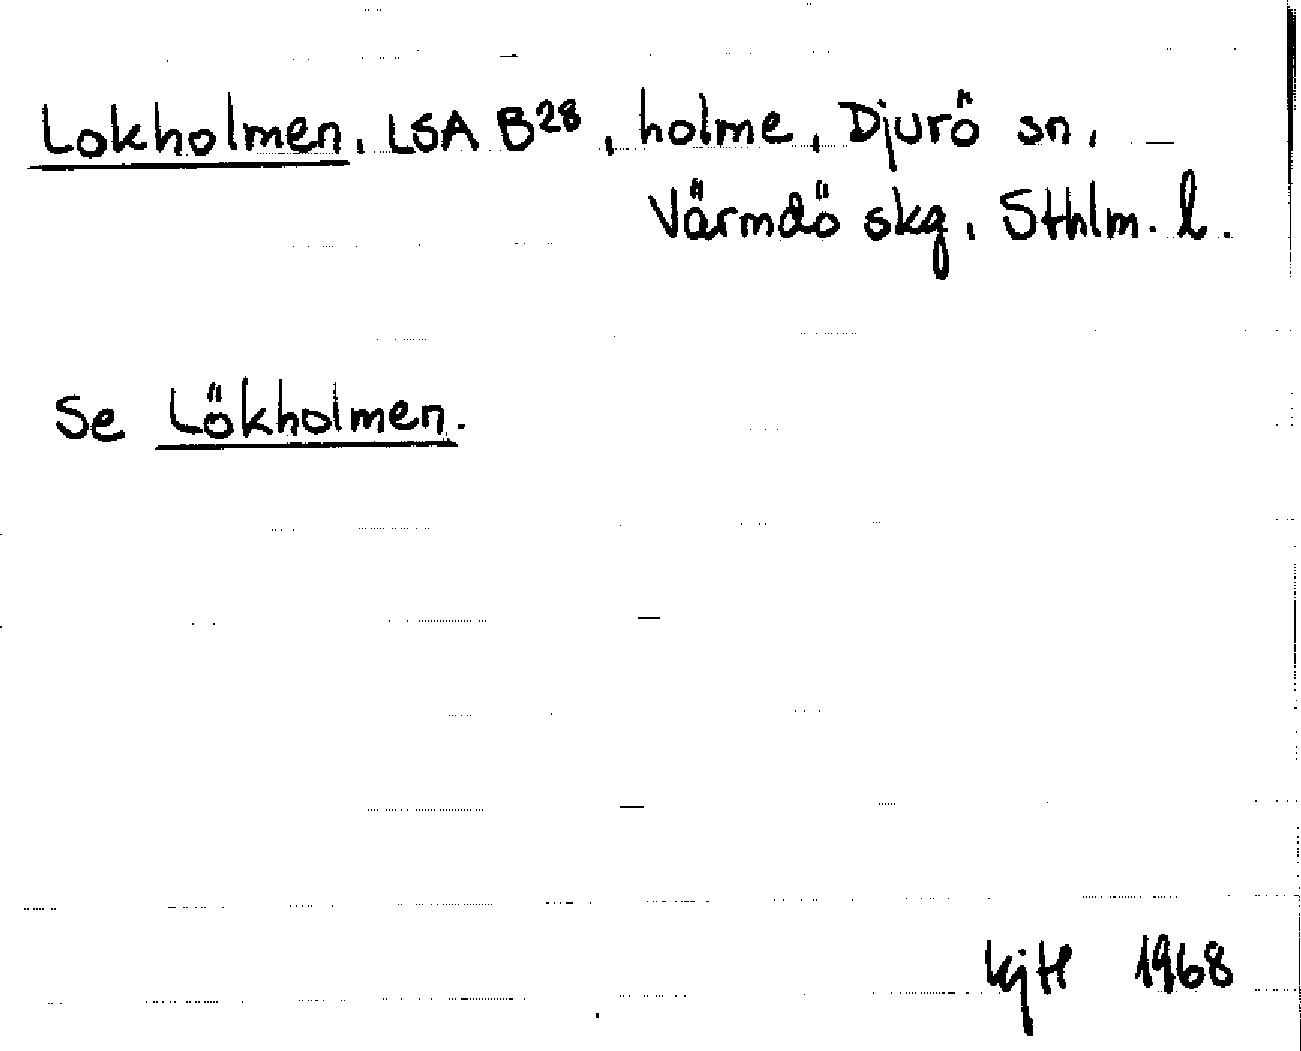 Lokholmen, LSA B28, holme, Djurö sn,
Värmdö skg, Sthlm. l.
Se Lökholmen.
KjH 1968